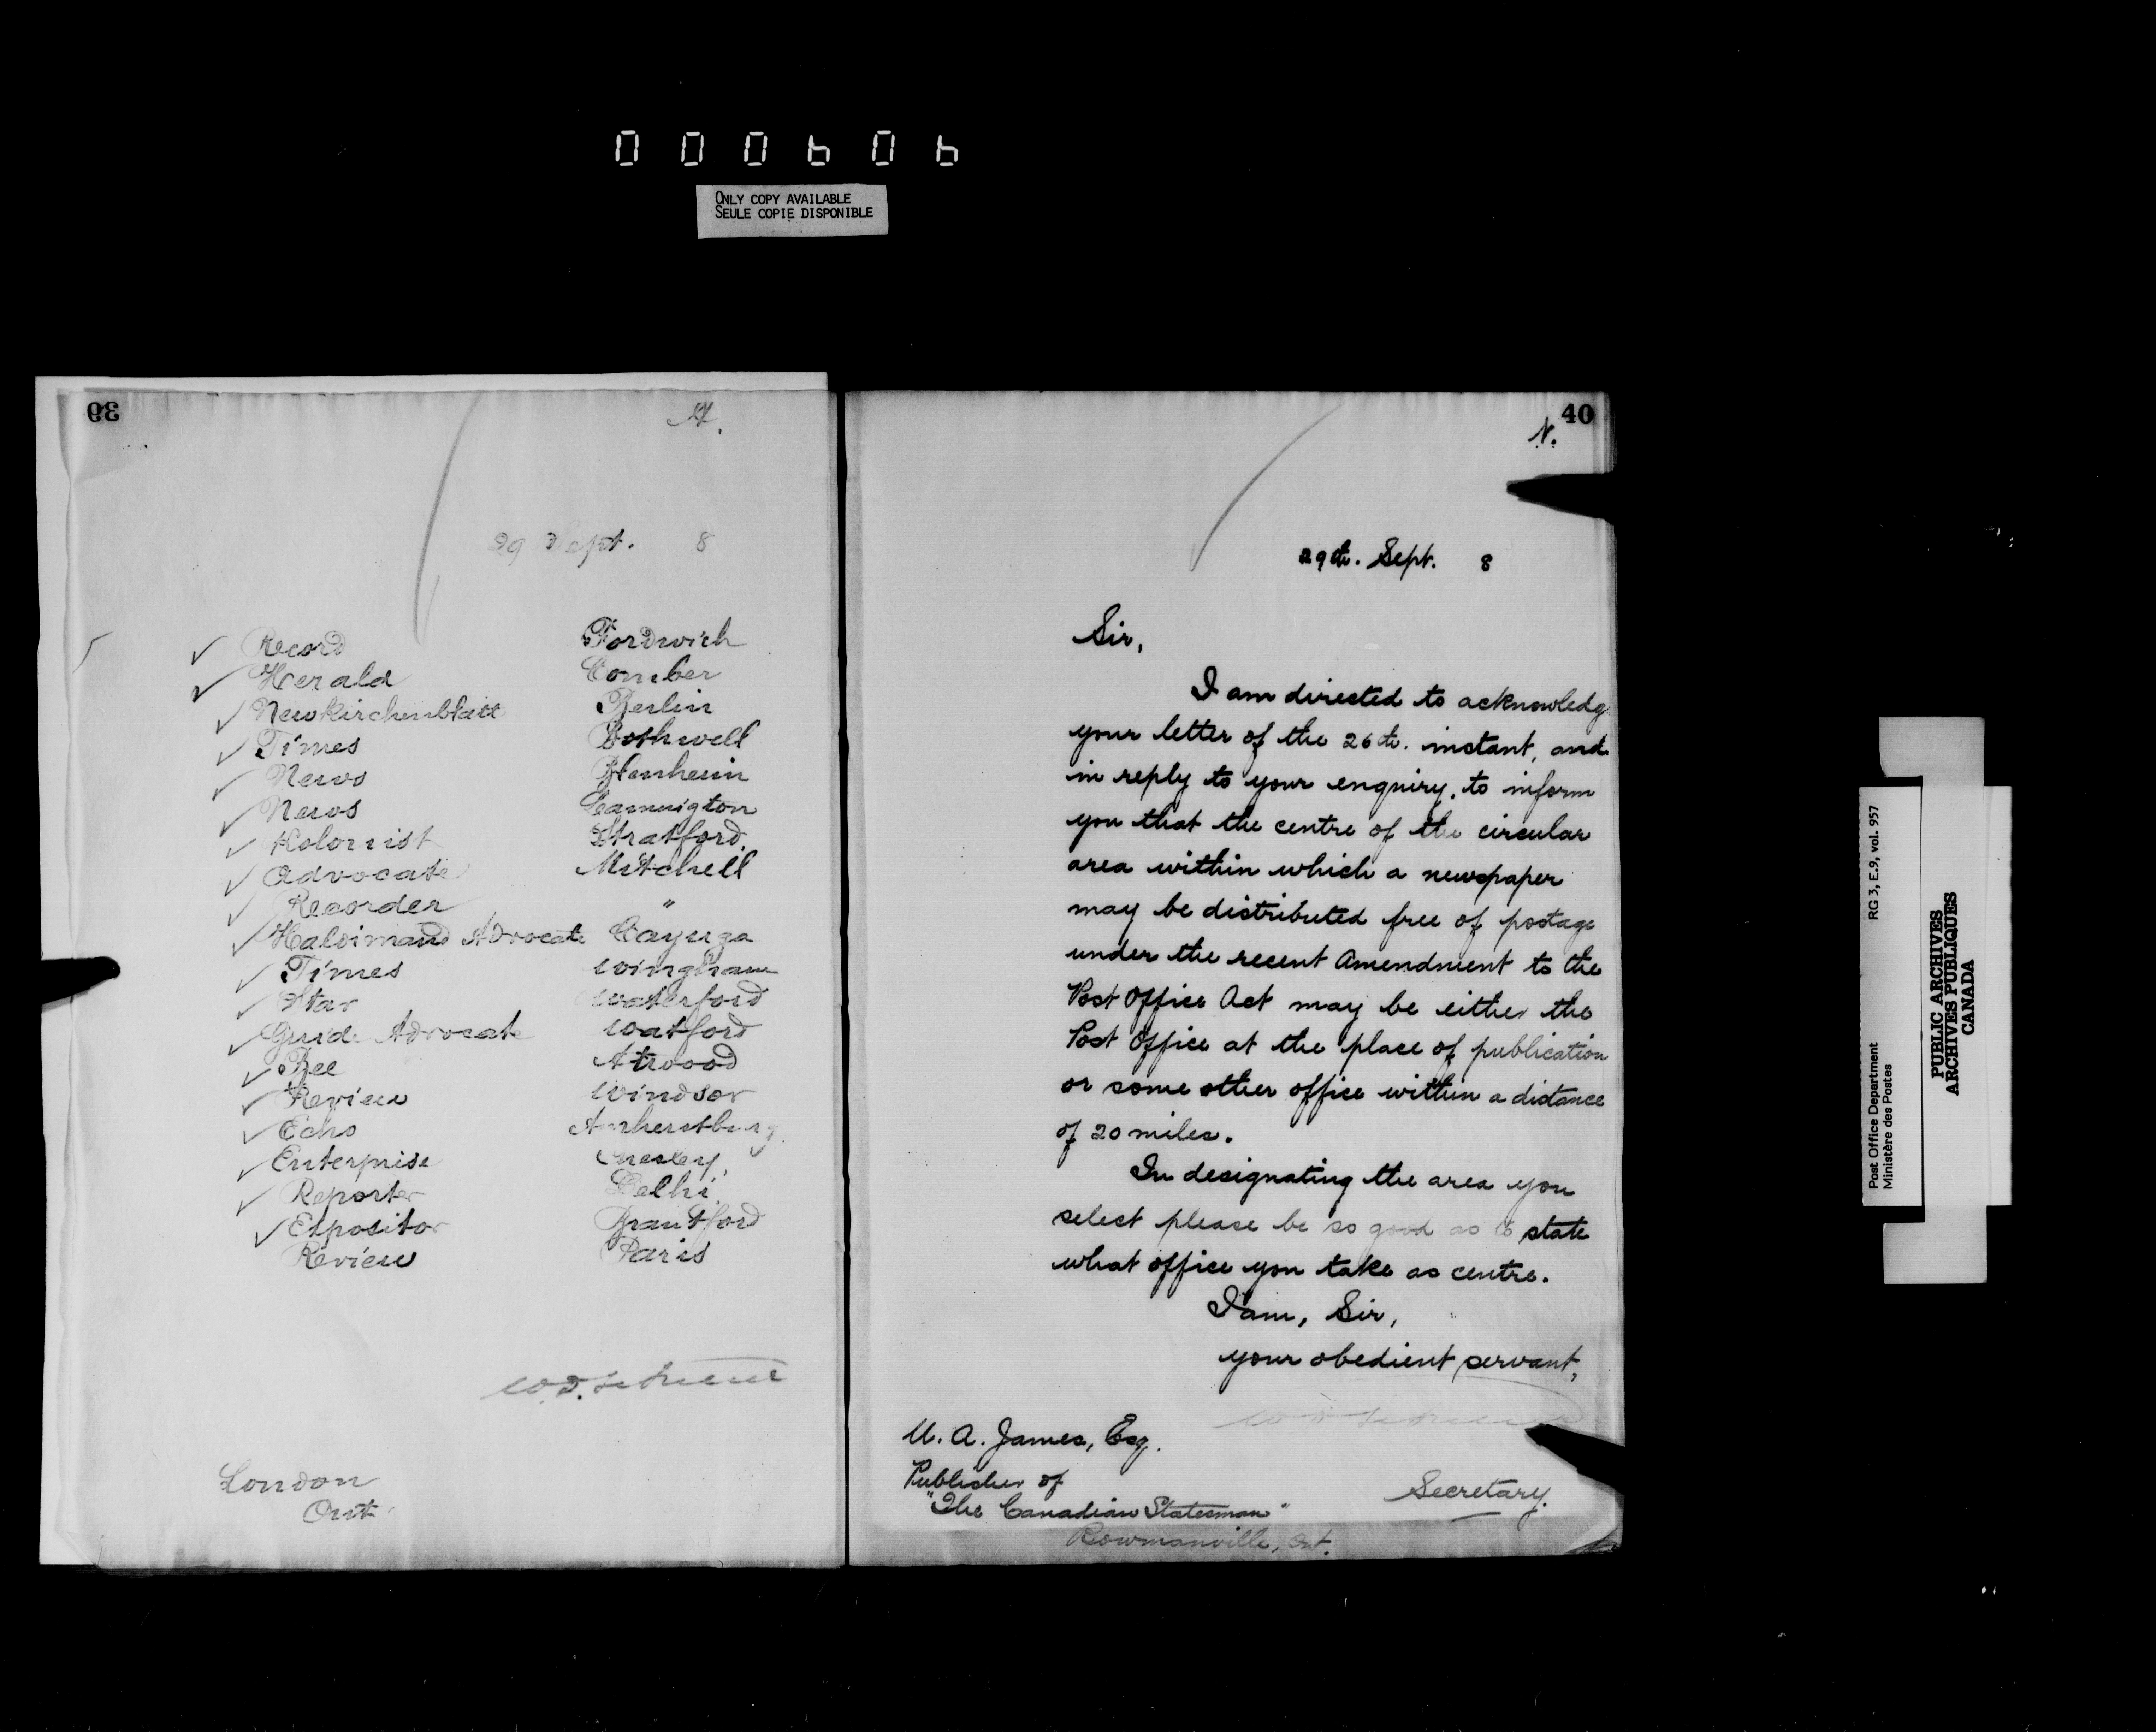 000606
ONLY COPY AVAILABLE
SEULE COPIE DISPONIBLE
39
29 Sept. 8
✓ Record Fordwich
✓ Herald Comber
✓ Newkirchenblatt Berlin
✓ Times Bothwell
✓ News Blenheim
✓ News Leamington
✓ Kolonist Stratford
✓ Advocate Mitchell
✓ Recorder "
✓ Haldimand Advocate Cayuga
✓ Times Wingham
✓ Star Waterford
✓ Guide Advocate Watford
✓ Bee Atwood
✓ Review Windsor
✓ Echo Amherstburg
✓ Enterprise Chesley,
✓ Reporter Delhi
✓ Expositor Brantford
Review Paris
London
Ont
40
N.
29th. Sept. 8
Sir,
I am directed to acknowledg
your letter of the 26th. instant, and
in reply to your enquiry, to inform
you that the centre of the circular
area within which a newspaper
may be distributed free of postage
under the recent Amendment to the
Post Office Act may be either the
Post Office at the place of publication
or some other office within a distance
of 20 miles.
In designating the area you
select please be so good as to state
what office you take as centre.
I am, Sir,
your obedient servant,
M. A. James, Esq.
Publisher of
"The Canadian Statesman"
Bowmanville, Ont.
Secretary.
Post Office Department RG 3, E.9, vol. 957
Ministère des Postes
PUBLIC ARCHIVES
ARCHIVES PUBLIQUES
CANADA